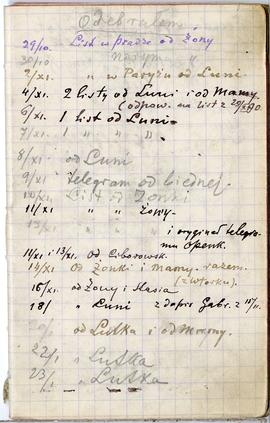 Odebrałem
29/10. List w Pradze od Żony
30/10 " "
2/XI. " w Paryżu od Luni
4/XI. 2 listy od Luni i od Mamy
(odpow. na list z 29/X)
6/XI. 1 list od Luni
7/XI. " " "
8/XI. od Luni
9/XI telegram od biednej
10/XI. List od Żonki
11/XI " " Żony
i oryginał telegramu
14/XI i 13/XI. od Ciborowsk.
14/XI od Żonki i Mamy razem.
(z Wtorku).
16/XI od Żony i Stasia
18/ " Luni z dopis Gabr. z
od Lutka i od Mamy.
22/ " Lutka
23/ " Lutka